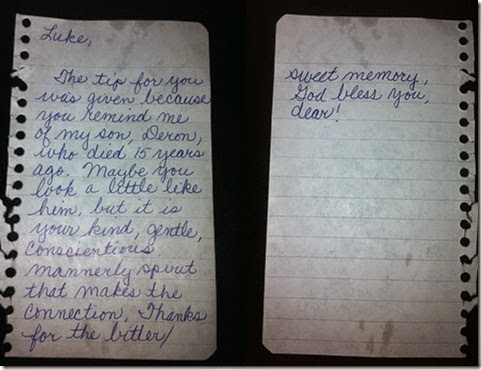 Luke,
The tip for you
was given because
you remind me
of my son, Deron,
who died 15 years
ago. Maybe you
look a little like
him, but it is
your kind, gentle,
conscientious
mannerly spirit
that makes the
connection. Thanks
for the bitter/
sweet memory,
God bless you,
dear!